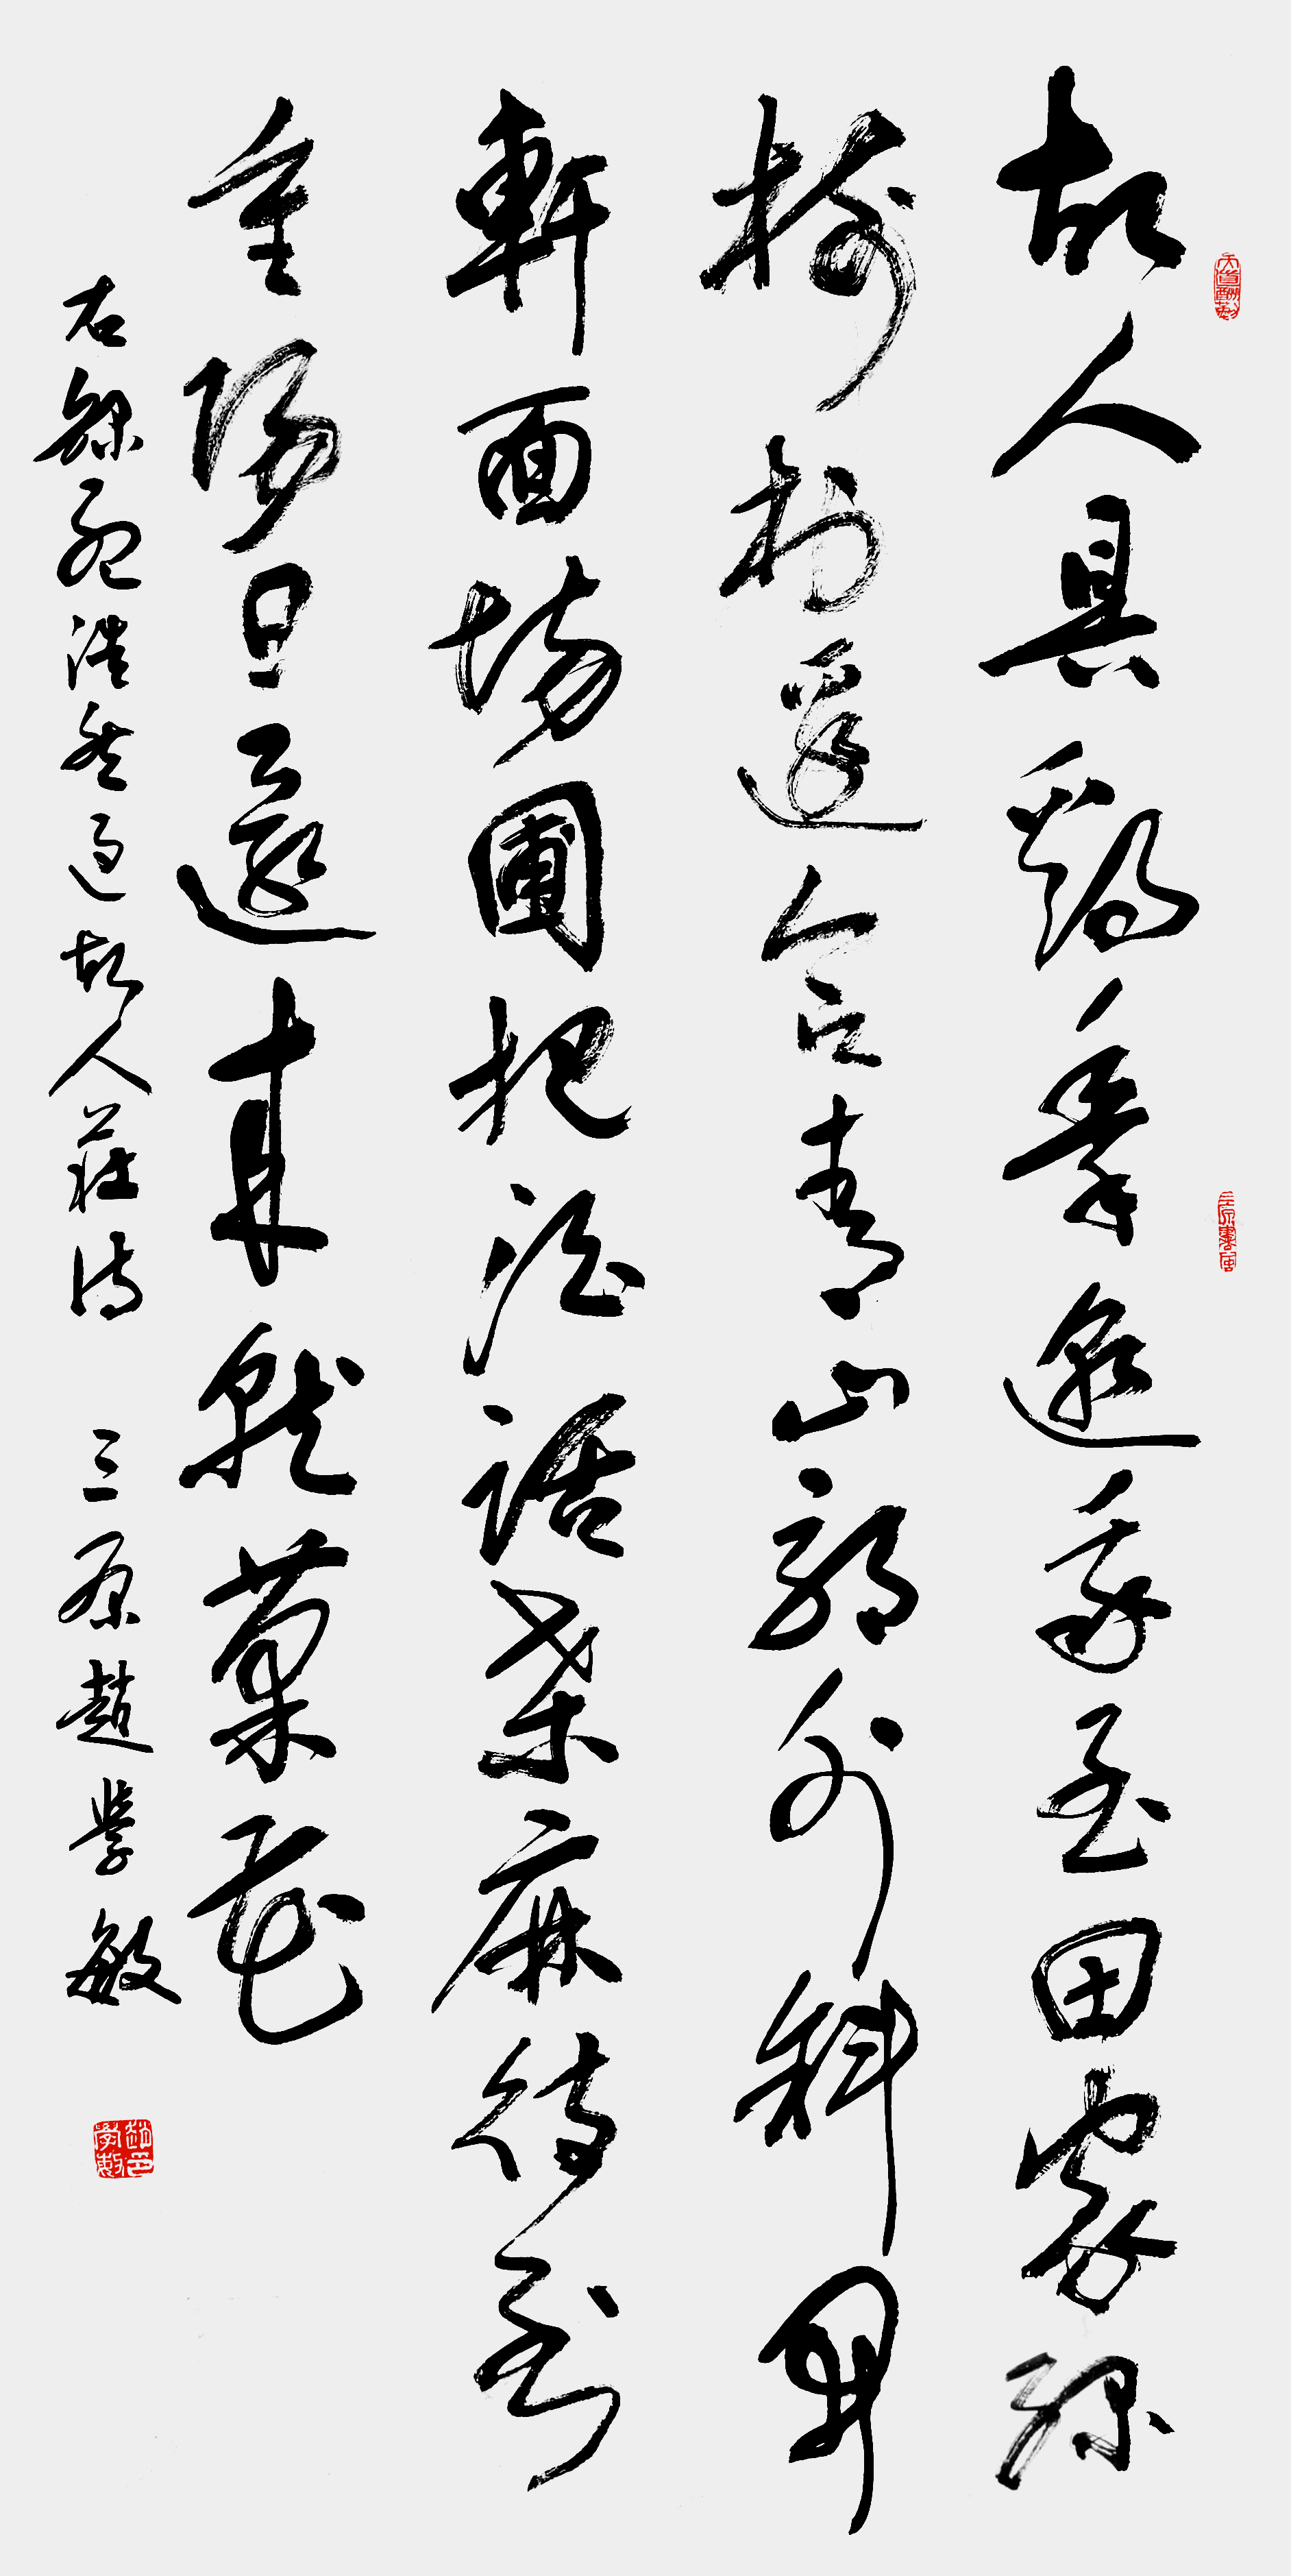 故人具雞黍邀我至田家綠
樹村邊合青山郭外斜開
軒面場圃把酒話桑麻待到
重陽日還來就菊花
右錄孟浩然過故人莊詩 三原趙學敏
天道酬勤
趙學敏印